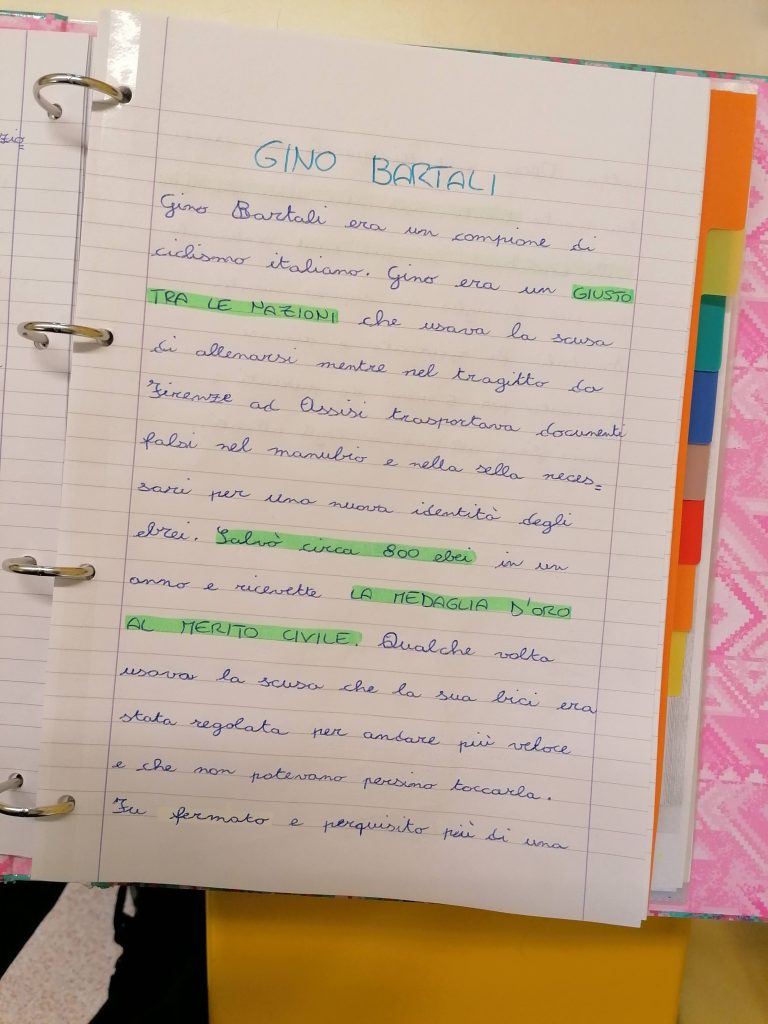 zio
GINO BARTALI
Gino Bartali era un campione di
ciclismo italiano. Gino era un GIUSTO
TRA LE NAZIONI che usava la scusa
di allenarsi mentre nel tragitto da
Firenze ad Assisi trasportava documenti
falsi nel manubrio e nella sella neces=
sari per una nuova identità degli
ebrei. Salvò circa 800 ebei in un
anno e ricevette LA MEDAGLIA D'ORO
AL MERITO CIVILE. Qualche volta
usava la scusa che la sua bici era
stata regolata per andare più veloce
e che non potevano persino toccarla.
Fu fermato e perquisito più di una